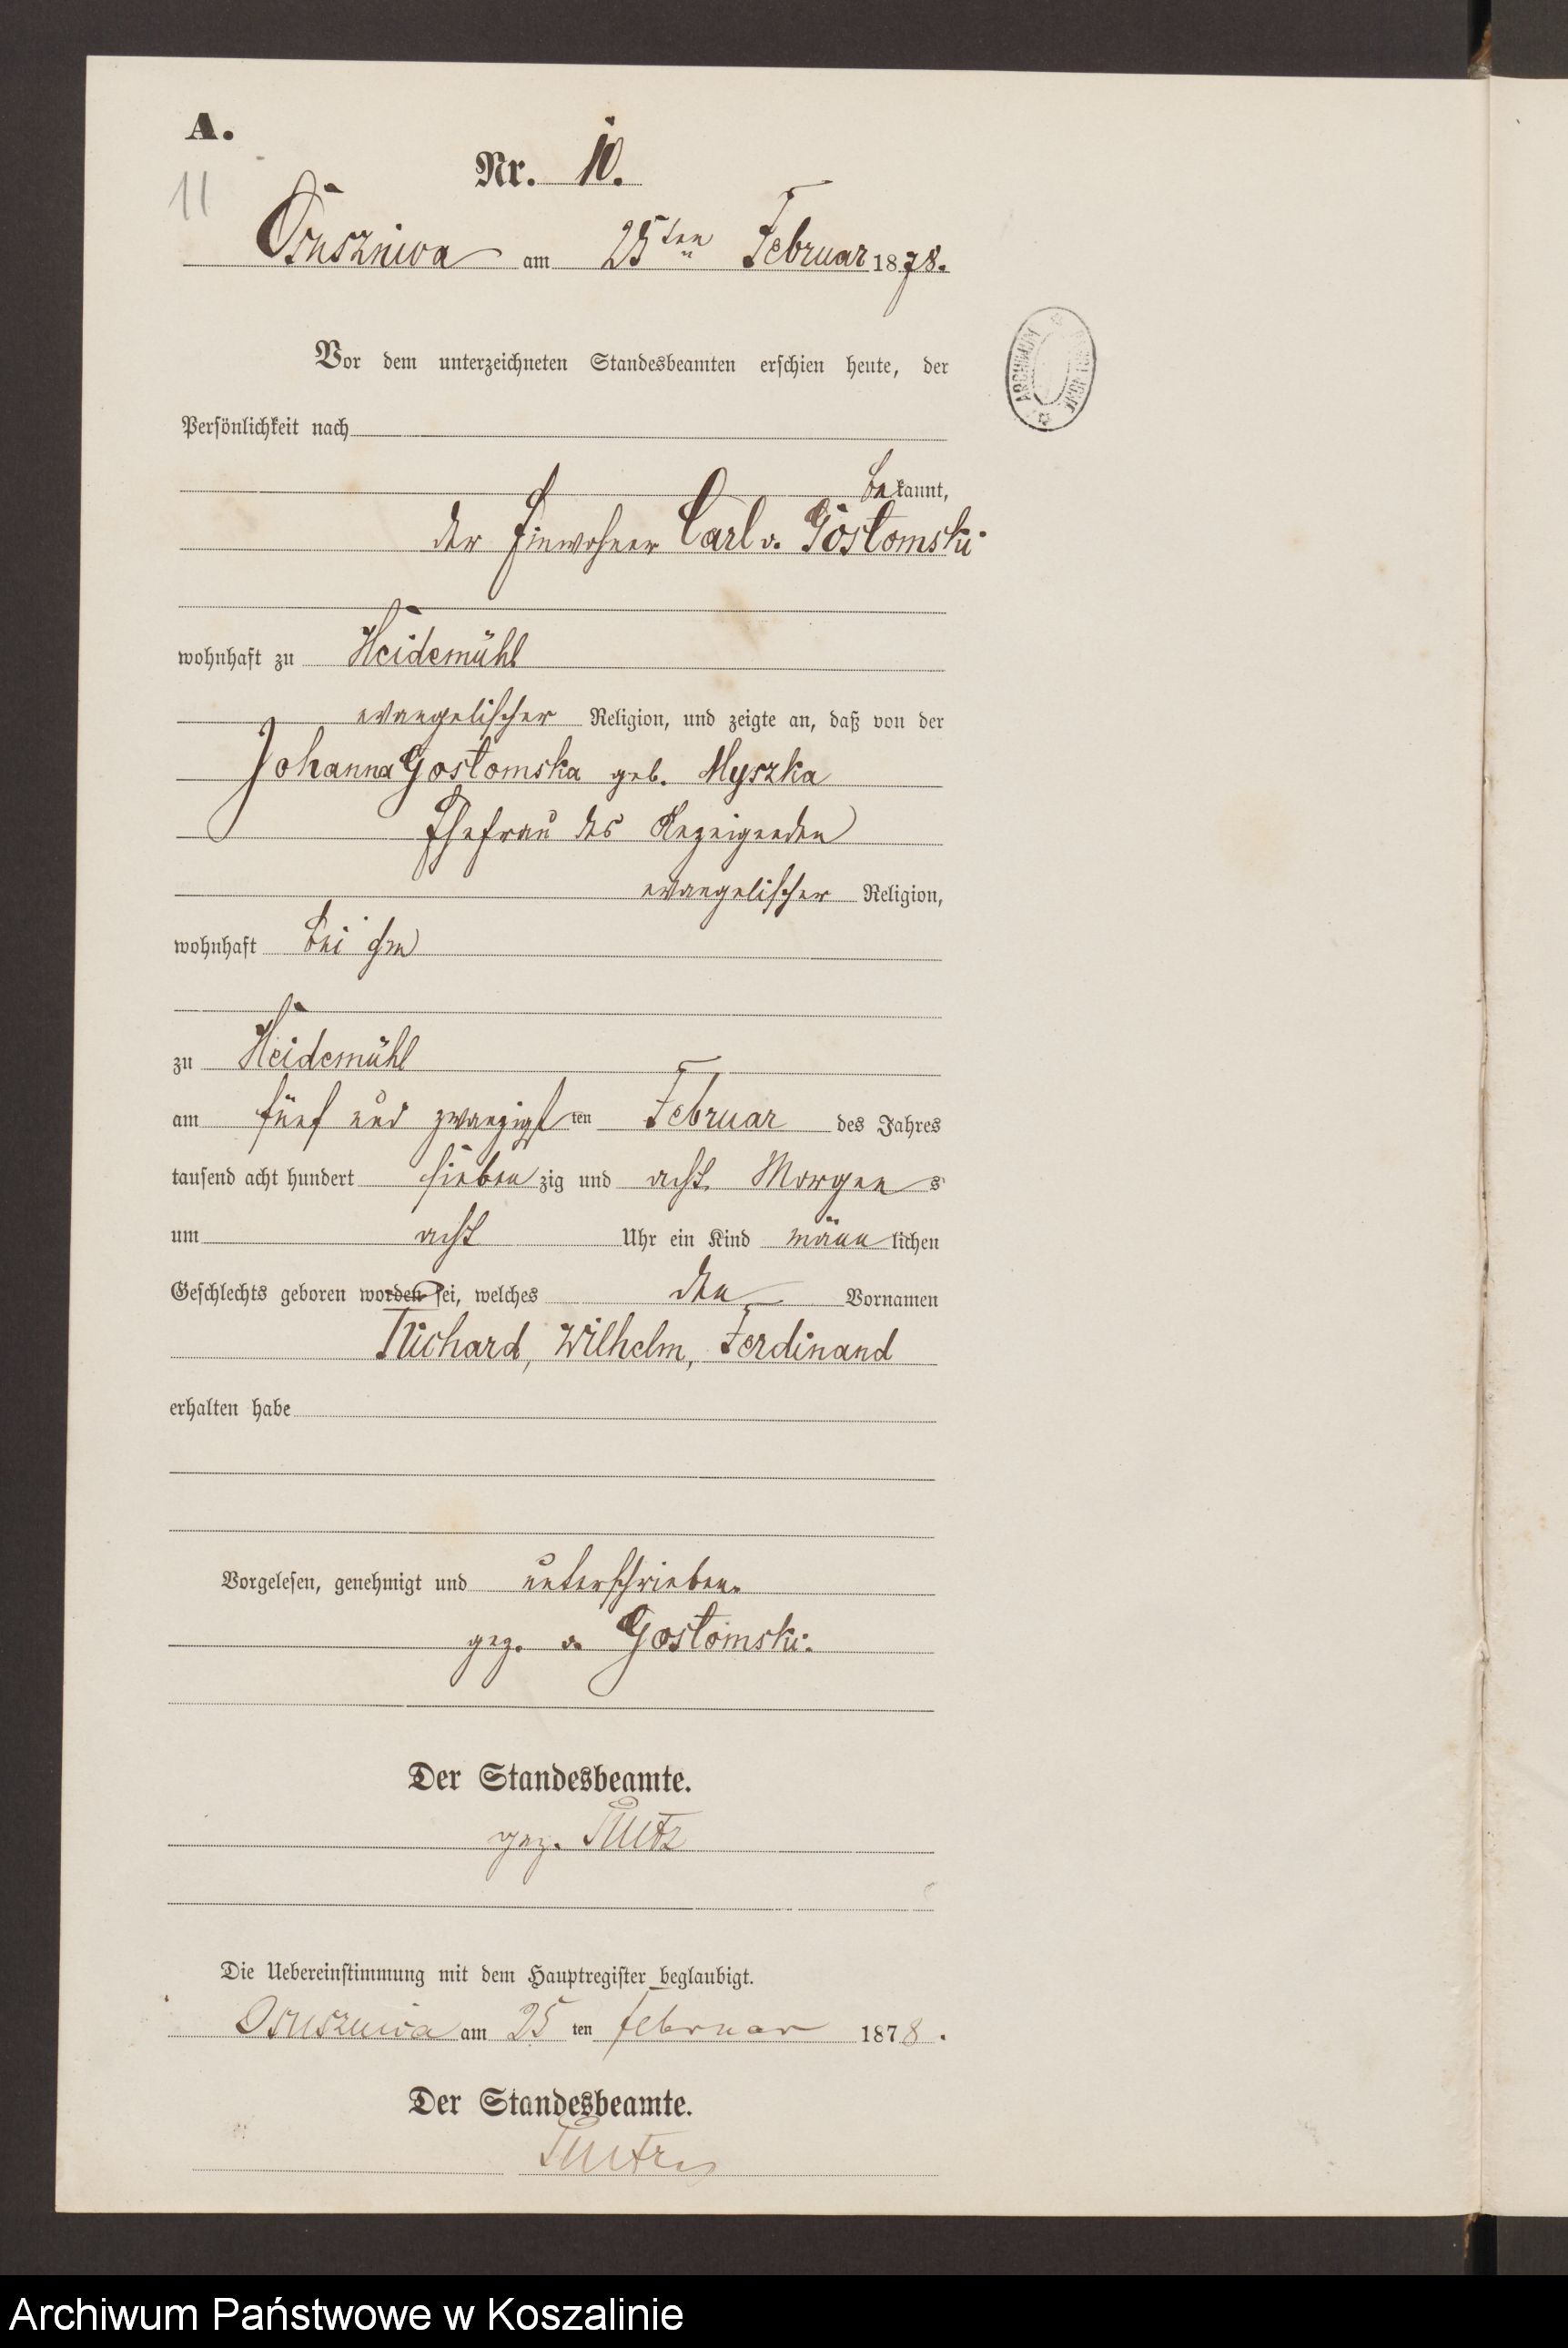 A.
Nr. 10.
11
Osuszniva am 25ten Februar 1878.
ARCHIWUM
Vor dem unterzeichneten Standesbeamten erschien heute, der
Persönlichkeit nach
bekannt,
der Einwohner Carl v. Gostomski
wohnhaft zu Heidemühl
evangelischer Religion, und zeigte an, daß von der
Johanna Gostomska geb. Myszka
Ehefrau des Anzeigenden
evangelischer Religion,
wohnhaft bei ihm
zu Heidemühl
am fünf und zwanzigsten Februar des Jahres
tausend acht hundert siebenzig und acht Morgens
um acht Uhr ein Kind männlichen
Geschlechts geboren worden sei, welches den Vornamen
Richard, Wilhelm, Ferdinand
erhalten habe
Vorgelesen, genehmigt und unterschrieben.
gez. v. Gostomski.
Der Standesbeamte.
gez.
Die Uebereinstimmung mit dem Hauptregister beglaubigt.
Osuszniva am 25 ten Februar 1878.
Der Standesbeamte.
Archiwum Państwowe w Koszalinie